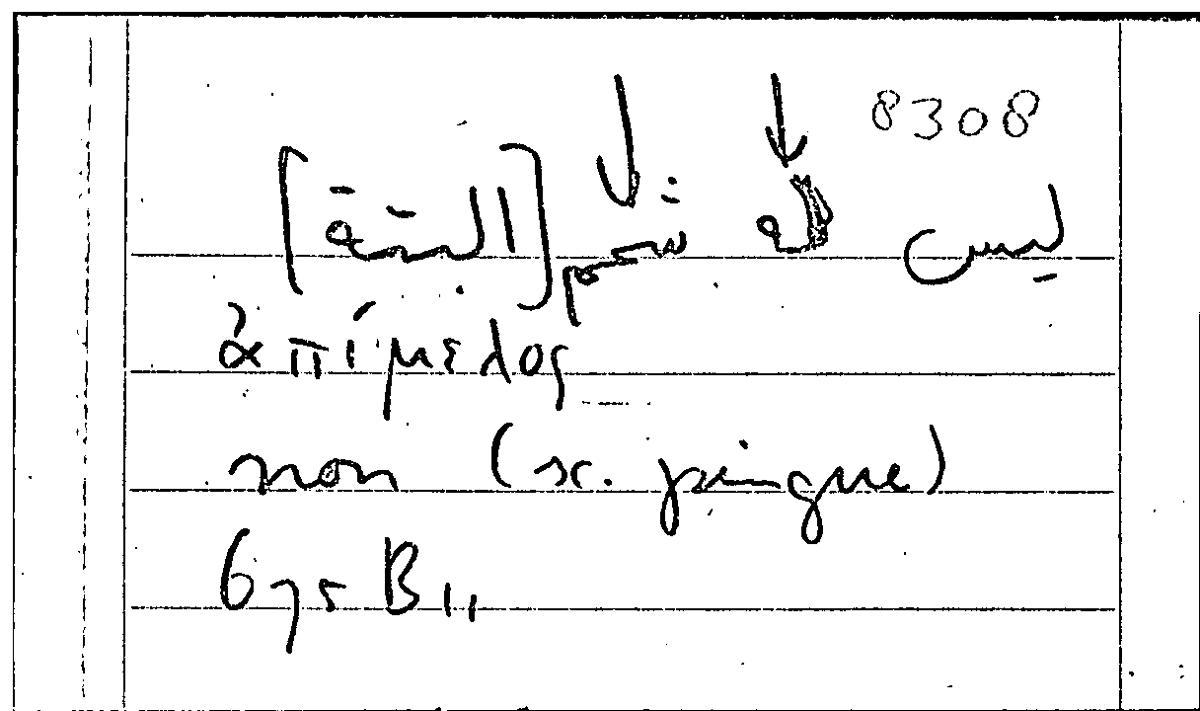 8308
ليس له شحم [البتّة]
ἀπίμελος
non (sc. pingue)
675 B 11